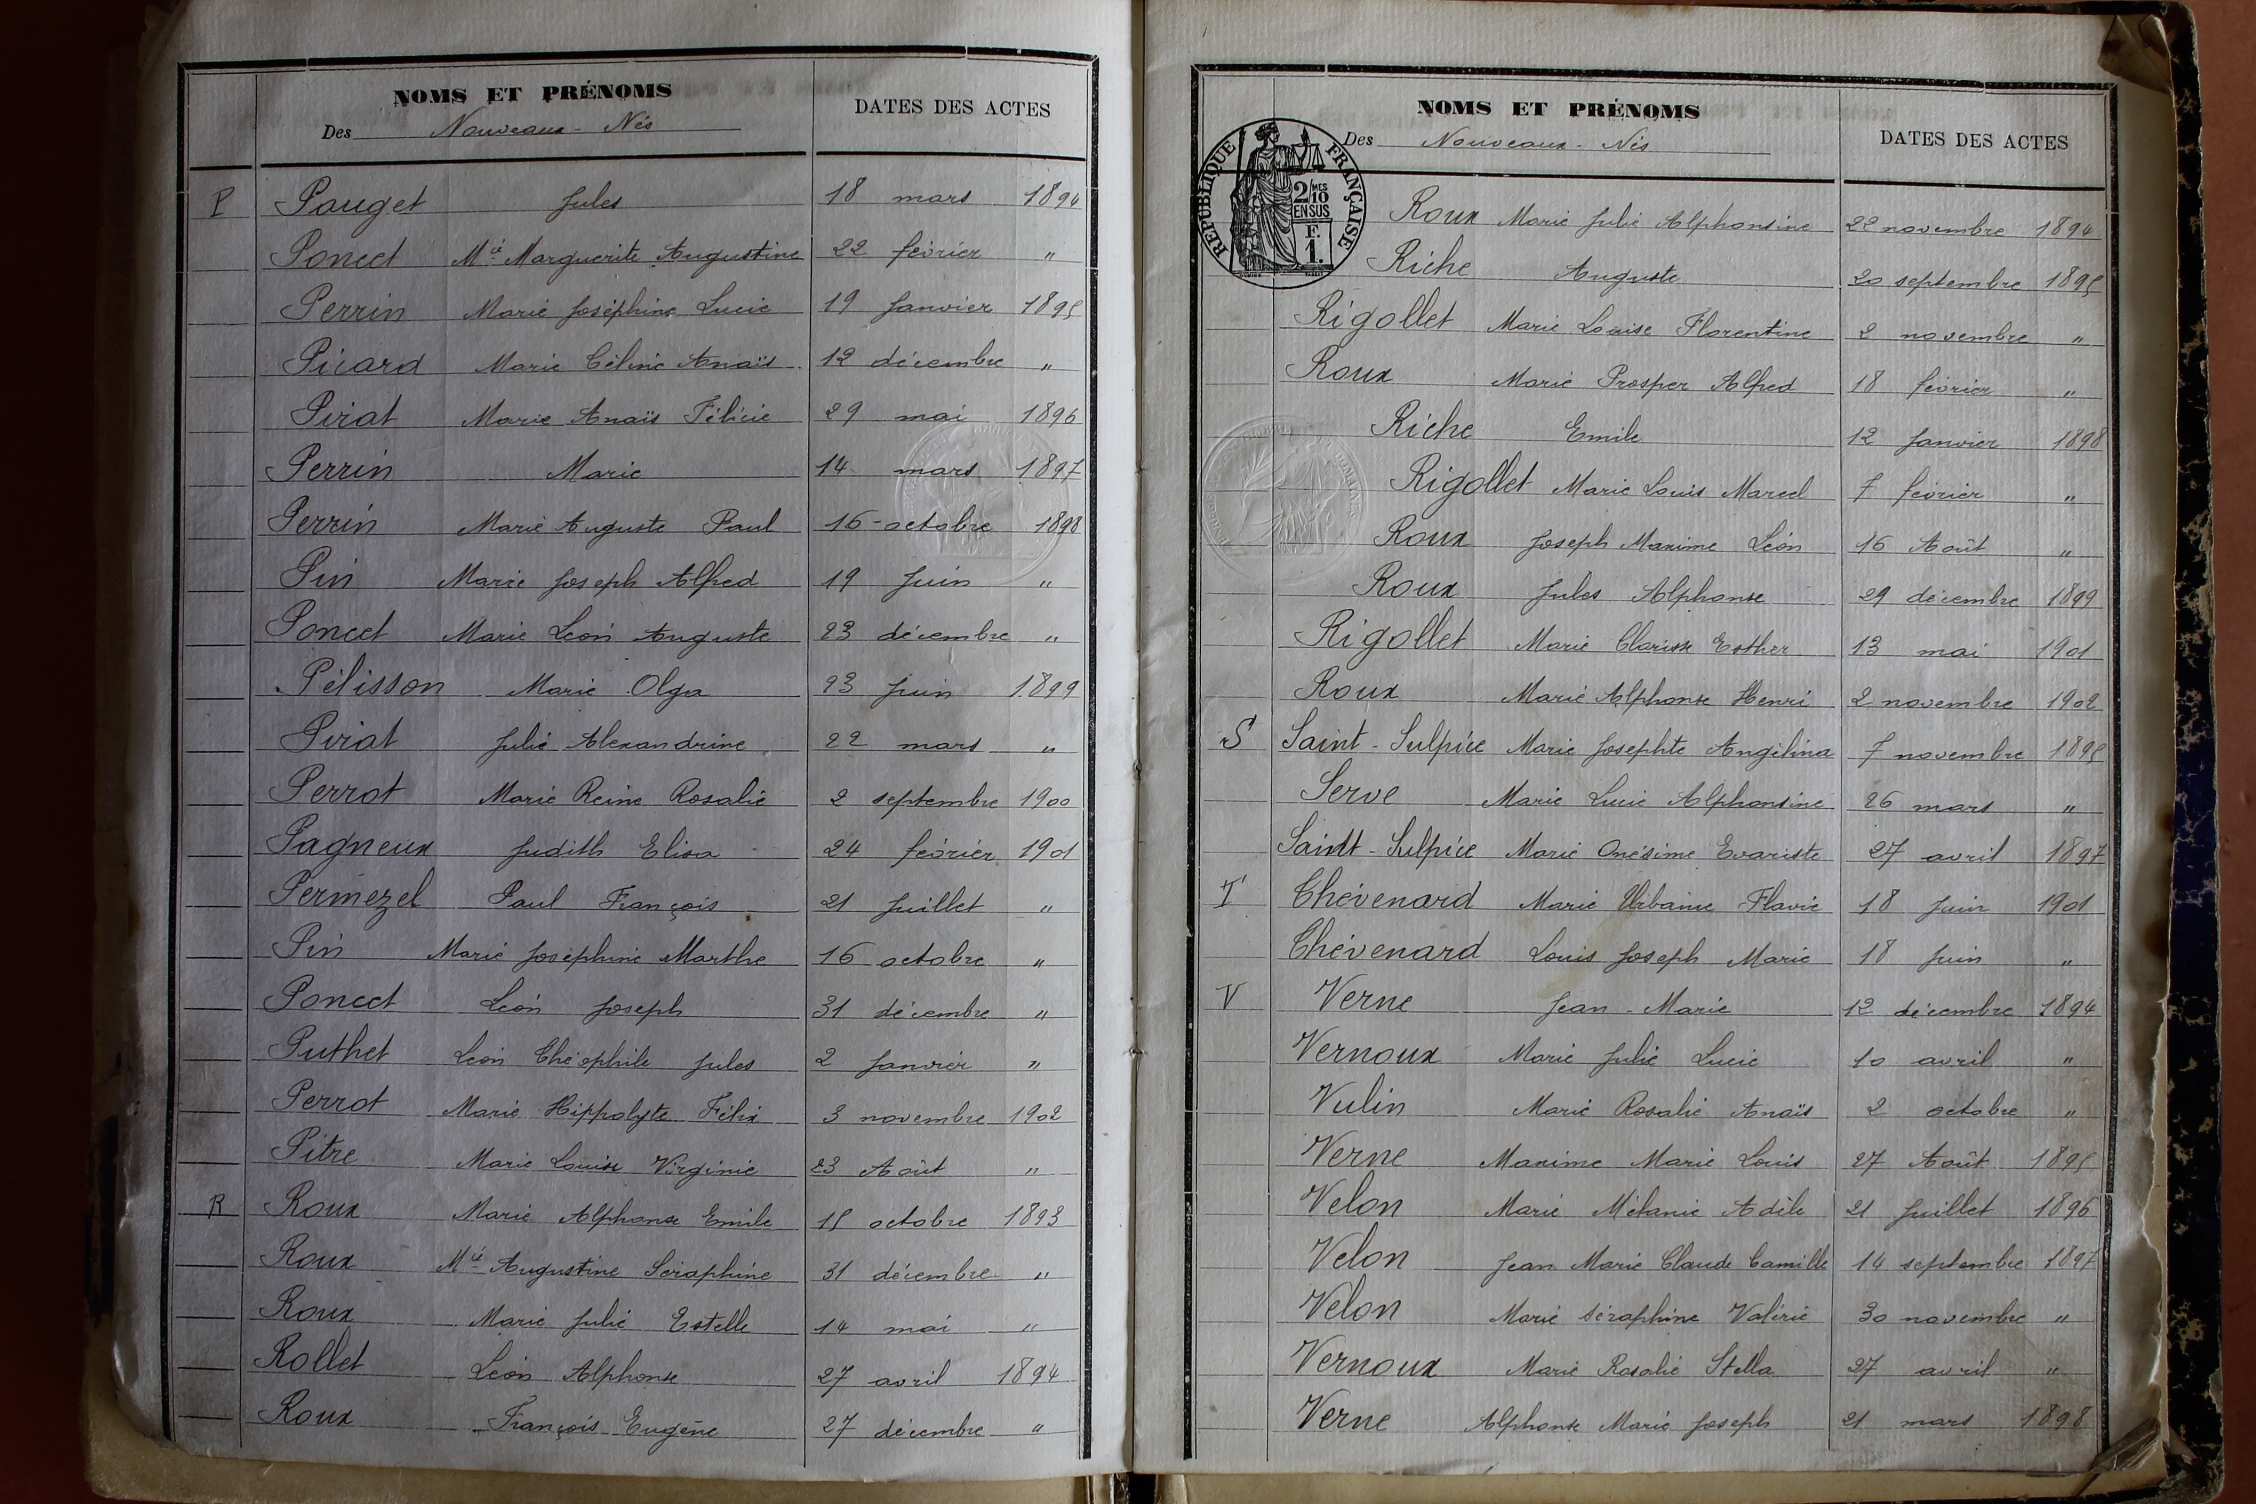 NOMS ET PRÉNOMS
Des Nouveaux-Nés
DATES DES ACTES
P Pauget Jules 18 mars 1894
Poncet Mie Marguerite Augustine 22 février "
Perrin Marie Joséphine Lucie 19 Janvier 1895
Picard Marie Céline Anaïs 12 décembre "
Pirat Marie Anaïs Félicie 29 mai 1896
Perrin Marie 14 mars 1897
Perrin Marie Auguste Paul 16 octobre 1898
Pin Marie Joseph Alfred 19 Juin "
Poncet Marie Léon Auguste 23 décembre "
Pélisson Marie Olga 23 Juin 1899
Pirat Julie Alexandrine 22 mars "
Perrot Marie Reine Rosalie 2 septembre 1900
Pagneux Judith Elisa 24 février 1901
Permezel Paul François 21 Juillet "
Pin Marie Joséphine Marthe 16 octobre "
Poncet Léon Joseph 31 décembre "
Puthet Léon Théophile Jules 2 Janvier "
Perrot Marie Hippolyte Félix 3 novembre 1902
Pitre Marie Louise Virginie 23 Août "
R Roux Marie Alphonse Emile 15 octobre 1893
Roux Mie Augustine Séraphine 31 décembre "
Roux Marie Julie Estelle 14 mai "
Rollet Léon Alphonse 27 avril 1894
Roux François Eugène 27 décembre "
NOMS ET PRÉNOMS
Des Nouveaux-Nés
DATES DES ACTES
RÉPUBLIQUE FRANÇAISE
2/MES
10
EN SUS
F.
1.
Roux Marie Julie Alphonsine 22 novembre 1894
Riche Auguste 20 septembre 1895
Rigollet Marie Louise Florentine 2 novembre "
Roux Marie Prosper Alfred 18 février "
Riche Emile 12 Janvier 1898
Rigollet Marie Louis Marcel 7 février "
Roux Joseph Maxime Léon 16 Août "
Roux Jules Alphonse 29 décembre 1899
Rigollet Marie Clarisse Esther 13 mai 1901
Roux Marie Alphonse Henri 2 novembre 1902
S Saint-Sulpice Marie Josephte Angélina 7 novembre 1895
Serve Marie Lucie Alphonsine 26 mars "
Saint-Sulpice Marie Onésime Evariste 27 avril 1897
T Thévenard Marie Urbanie Flavie 18 Juin 1901
Thévenard Louis Joseph Marie 18 Juin "
V Verne Jean-Marie 12 décembre 1894
Vernoux Marie Julie Lucie 10 avril "
Vulin Marie Rosalie Anaïs 2 octobre "
Verne Maxime Marie Louis 27 Août 1895
Velon Marie Mélanie Adèle 21 Juillet 1896
Velon Jean Marie Claude Camille 14 septembre 1897
Velon Marie Séraphine Valérie 30 novembre "
Vernoux Marie Rosalie Stella 27 avril "
Verne Alphonse Marie Joseph 21 mars 1898